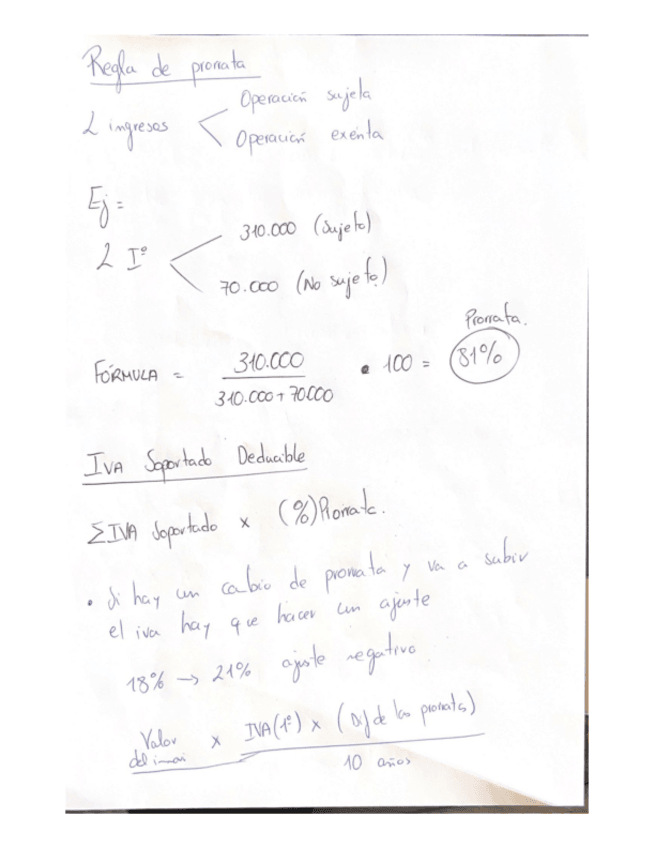 Regla de prorrata
2 ingresos < Operación sujeta
Operación exenta
Ej =
2 Iº < 310.000 (Sujeto)
70.000 (No sujeto)
Prorrata.
FÓRMULA = 310.000 / 310.000 + 70.000 • 100 = 81%
IVA Soportado Deducible
ΣIVA Soportado x (%) Prorrata.
• Si hay un cabio de prorrata y va a subir
el iva hay que hacer un ajuste
18% → 21% ajuste negativo
Valor del inmov x IVA (1º) x (Dif de las prorratas)
10 años